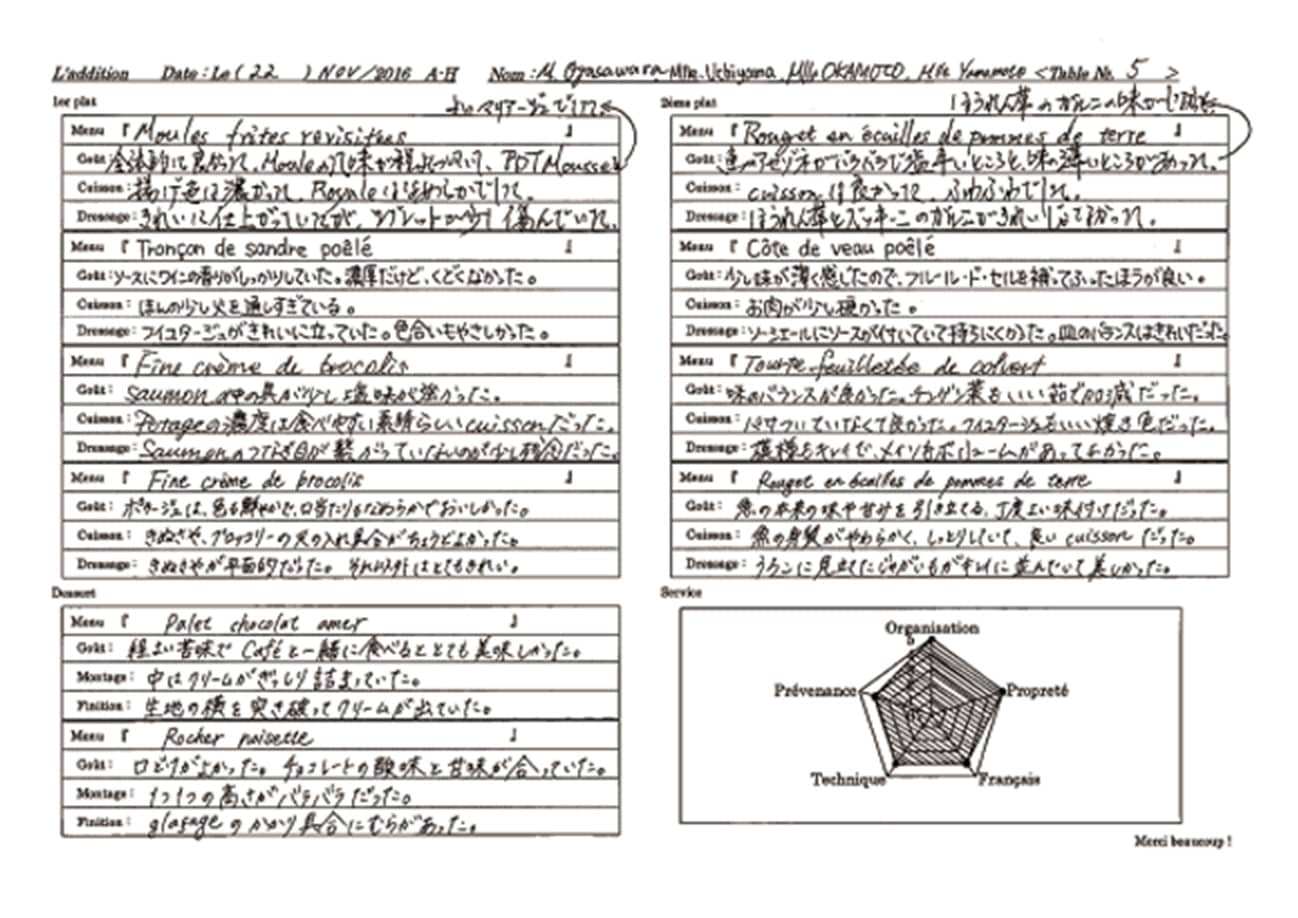 L'addition Date : Le ( 22 ) Nov / 2016 A-H Nom : M. Ogasawara Mlle. Uchiyama, Mlle OKAMOTO, Mlle Yamamoto < Table Nr. 5 >
1er plat
マリアージュでした
Menu 『 Moules frites revisitées 』
Goût : 全体的に良かった。Mouleの味が程よくついて、PDT Mousse
Cuisson : 揚げ色は濃かった。Royaleはなめらかでした。
Dressage : きれいに仕上がっていたが、が少し傷んでいた。
Menu 『 Tronçon de sandre poêlé 』
Goût : ソースにワインの香りがしっかりしていた。濃厚だけど、くどくなかった。
Cuisson : ほんの少し火を通しすぎている。
Dressage : フイユタージュがきれいに立っていた。色合いもやさしかった。
Menu 『 Fine crème de brocolis 』
Goût : Saumonの中の具が少し塩味が強かった。
Cuisson : Potageの濃度は食べやすい素晴らしいcuissonだった。
Dressage : Saumonのつなぎ目が繋がっていないのが少し残念だった。
Menu 『 Fine crème de brocolis 』
Goût : ポタージュは、色も鮮やかで、口当たりもなめらかでおいしかった。
Cuisson : きぬさや、ブロッコリーの火の入れ具合がちょうどよかった。
Dressage : きぬさやが平面的だった。それ以外はとてもきれい。
Dessert
Menu 『 Palet chocolat amer 』
Goût : 程よい苦味でCaféと一緒に食べるととても美味しかった。
Montage : 中はクリームがぎっしり詰まっていた。
Finition : 生地の横を突き破ってクリームが出ていた。
Menu 『 Rocher noisette 』
Goût : 口どけがよかった。チョコレートの酸味と甘味が合っていた。
Montage : 1つ1つの高さがバラバラだった。
Finition : glaçageのかかり具合にむらがあった。
2ème plat
ほうれん草のガルニの味が
Menu 『 Rouget en écailles de pommes de terre 』
Goût : 魚のアセゾネがバラバラで塩辛いところと、味の薄いところがあった。
Cuisson : cuissonは良かった。ふわふわでした。
Dressage : ほうれん草とズッキーニのガルニがきれいでよかった。
Menu 『 Côte de veau poêlé 』
Goût : 少し味が薄く感じたので、フルール・ド・セルを補ってふったほうが良い。
Cuisson : お肉が少し硬かった。
Dressage : ソーシエールにソースが付いていて持ちにくかった。皿のバランスはきれいだった。
Menu 『 Tourte feuilletée de colvert 』
Goût : 味のバランスが良かった。チンゲン菜もいい茹で加減だった。
Cuisson : パサついていなくて良かった。フイユタージュもいい焼き色だった。
Dressage : 模様もキレイで、メインもボリュームがあってよかった。
Menu 『 Rouget en écailles de pommes de terre 』
Goût : 魚の本来の味や甘みを引き立てる、丁度よい味付けだった。
Cuisson : 魚の身質がやわらかく、しっとりしていて、良いcuissonだった。
Dressage : うろこに見立てたじゃがいもがキレイに並んでいて美しかった。
Service
Organisation
5
Prévenance
Propreté
Technique
Français
Merci beaucoup !